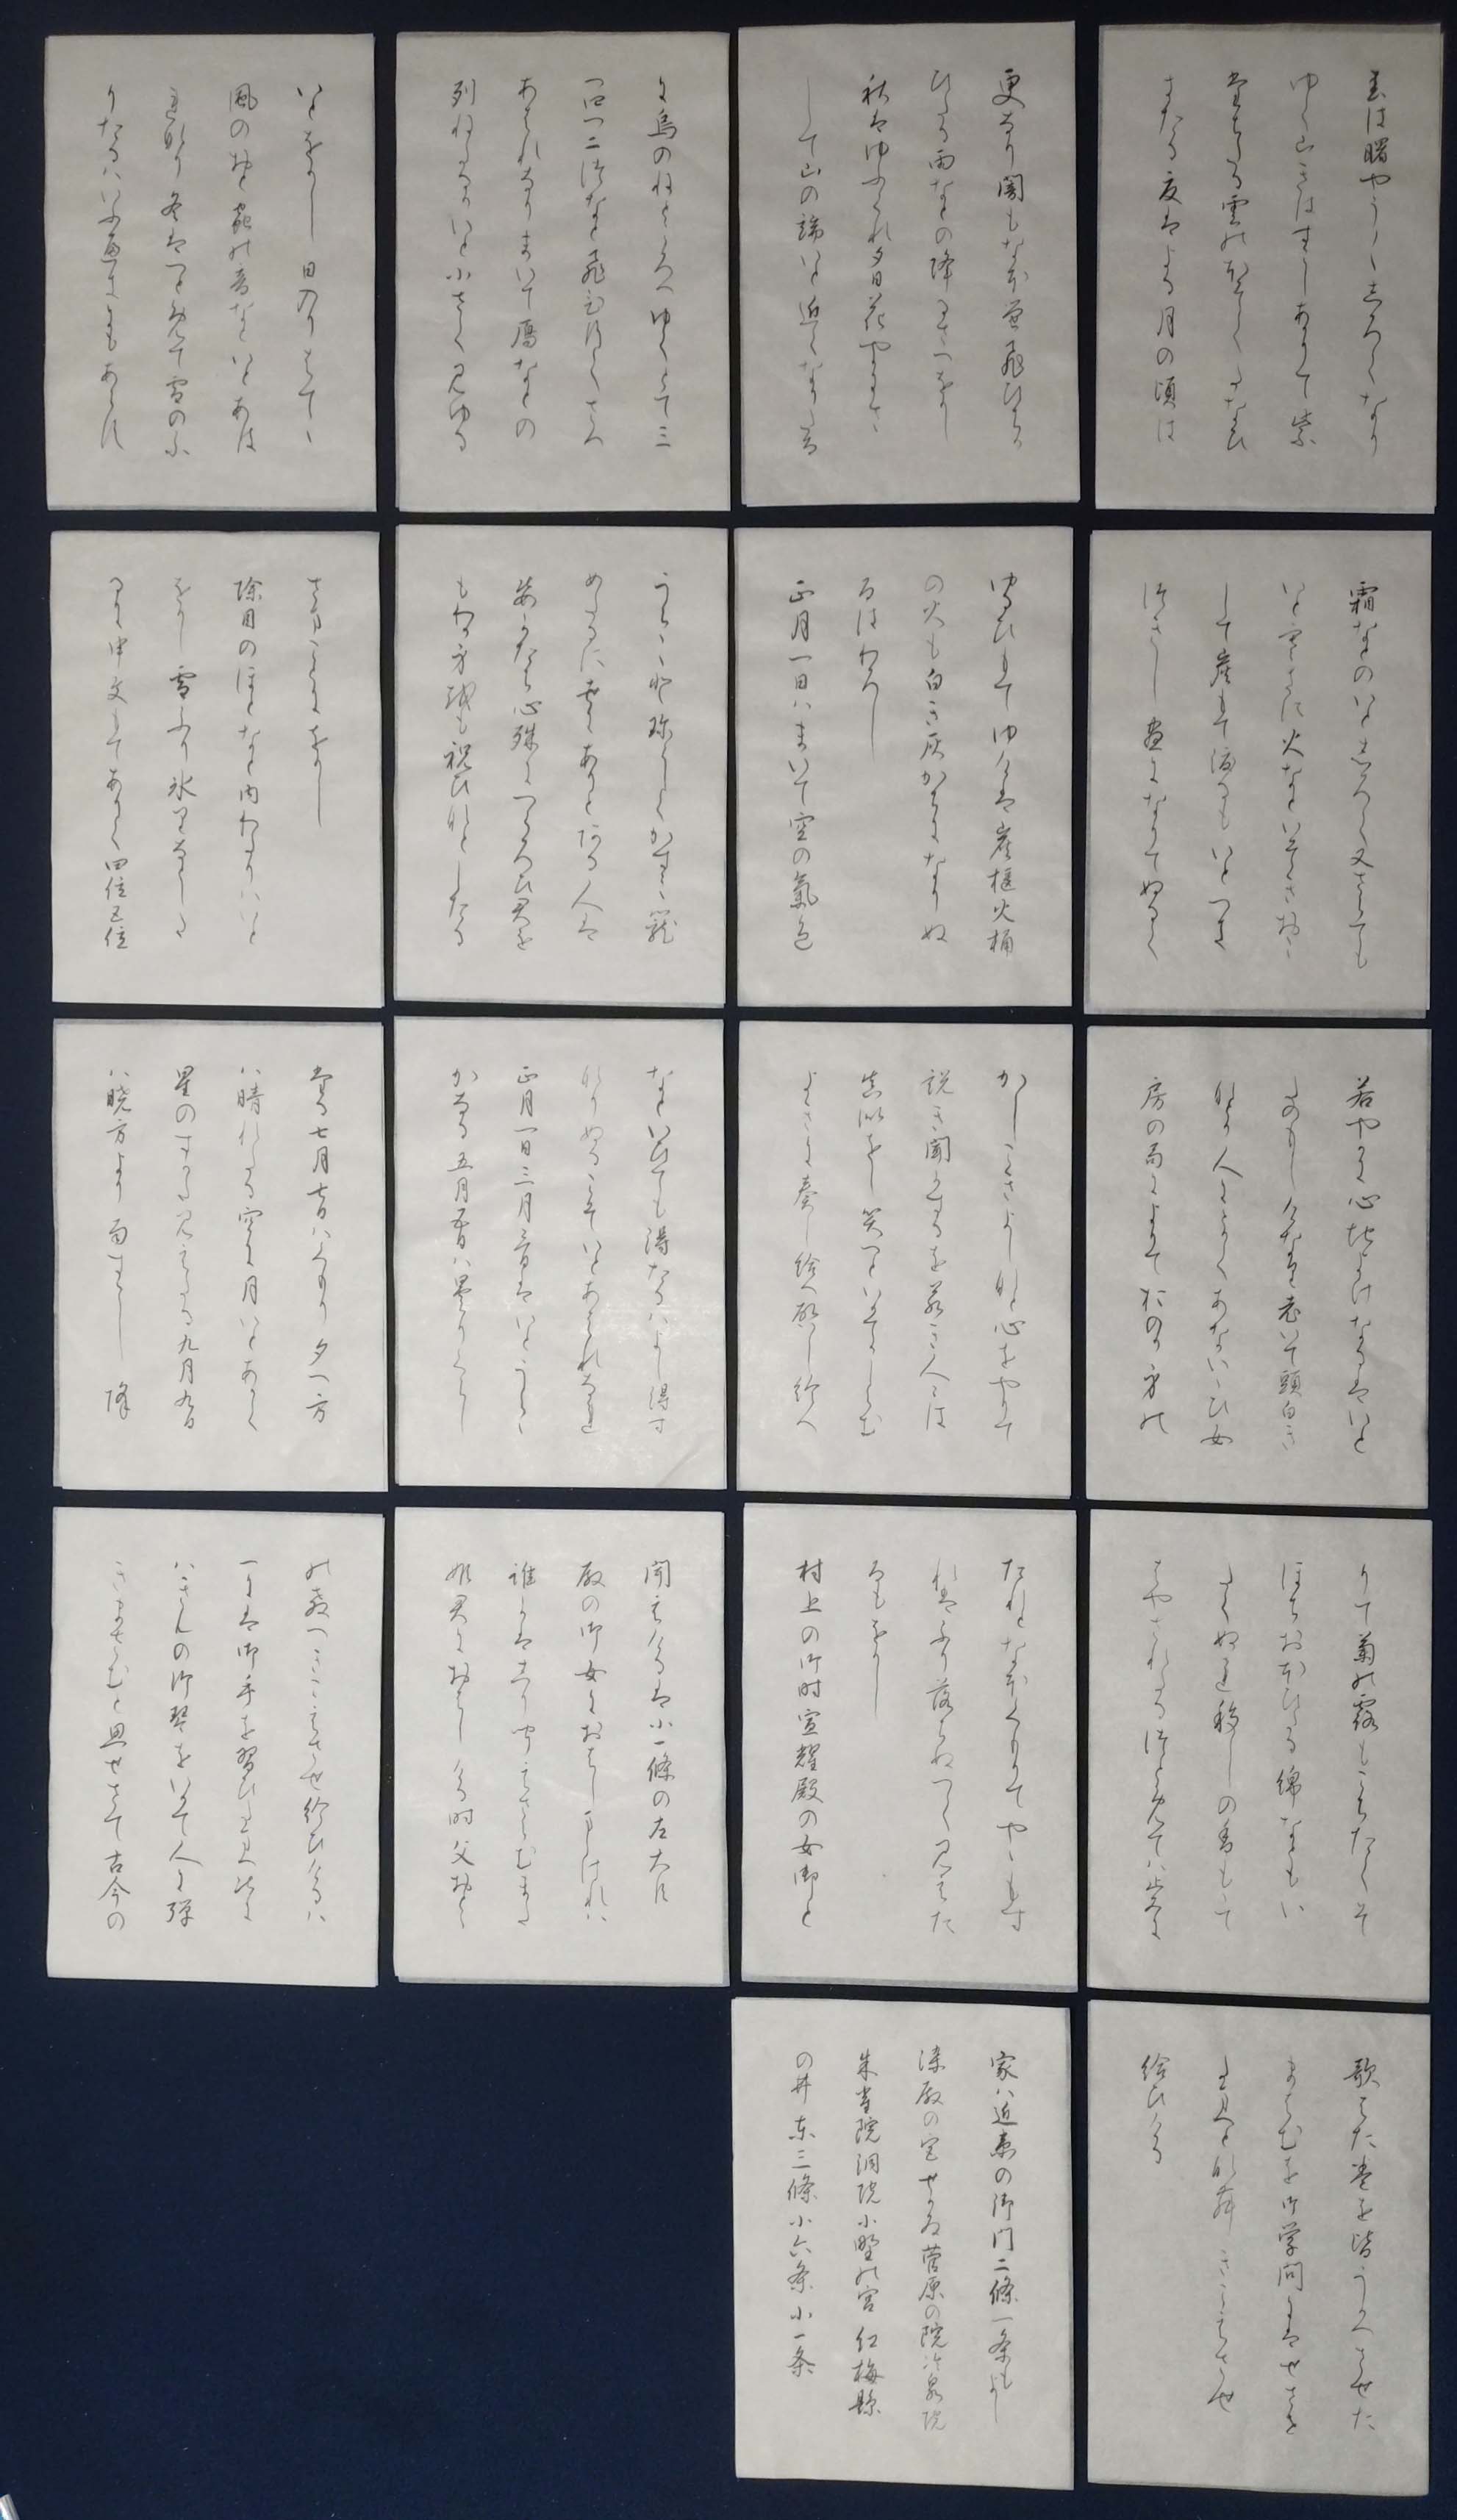 春は曙やう〱しろくなり
ゆく山きはすこしあかりて紫
たちたる雲のほそくたなひ
きたる夏はよる月の頃は
更なり闇もなほ蛍飛ひたる
ひたる雨なとの降るさへをかし
秋はゆふくれ夕日花やかにさ
して山の端いと近くなりたる
に烏のねところへゆくとて三
つ四つ二つなと飛ひゆくさへ
あはれなりまいて雁なとの
列ねたるかいと小さく見ゆる
いとをかし日のいりはてゝ
風のおと虫の音なといとあは
れなり冬はつとめて雪のふ
りたるはいふへきにもあらす
霜なとのいとしろく又さらても
いと寒きに火なといそきおこ
して炭もて渡るもいとつき
つきし昼になりてぬるく
ゆるひもてゆけは炭櫃火桶
の火も白き灰かちになりぬ
るはわろし
正月一日はまいて空の氣色
うらゝと珍らしくかすみ籠
めたるに世にありとある人は
姿かたち心殊につくろひ君を
もわか身をも祝ひなとしたる
さまことにをかし
除目のほとなと内わたりいと
をかし雪ふり氷りなとしたる
に申文もてありく四位五位
若やかに心地よけなるはいと
たのもしけなり老いて頭白き
なとか人にとかくあないいひ女
房の局によりておのか身の
かしこきよしなと心をやりて
説き聞かするを若き人々は
真似をし笑へといかてか知らむ
よきに奏し給へ啓し給へ
なといひても得たるはよし得す
なりぬるこそいとあはれなれ
正月一日三月三日はいとうらゝ
かなる五月五日は曇りくらし
たる七月七日はくもり夕方
は晴れたる空に月いとあかく
星のすかた見えたる九月九日
は暁方より雨すこし降
りて菊の露もこちたくそ
ほちおほひたる綿なともい
たくぬれ移しの香ももて
はやされたるつとめては止みに
たれとなほくもりてやゝもす
れはふり落ちぬへく見えた
るもをかし
村上の御時宣耀殿の女御と
聞えけるは小一條の左大臣
殿の御女におはしましけれは
誰かは知り聞えさらむまた
姫君におはしける時父おとゝ
の教へきこえさせ給ひけるは
一には御手を習ひ給へ次に
はきんの御琴をいかて人に弾
きまさらむと思せさて古今の
歌二十巻を皆うかへさせた
まはむを御学問にはせさせ
たまへとなむきこえさせ
給ひける
家は近衛の御門二條一条もよし
染殿の宮せかゐ菅原の院冷泉院
朱雀院洞院小野の宮紅梅縣
の井東三條小六条小一条